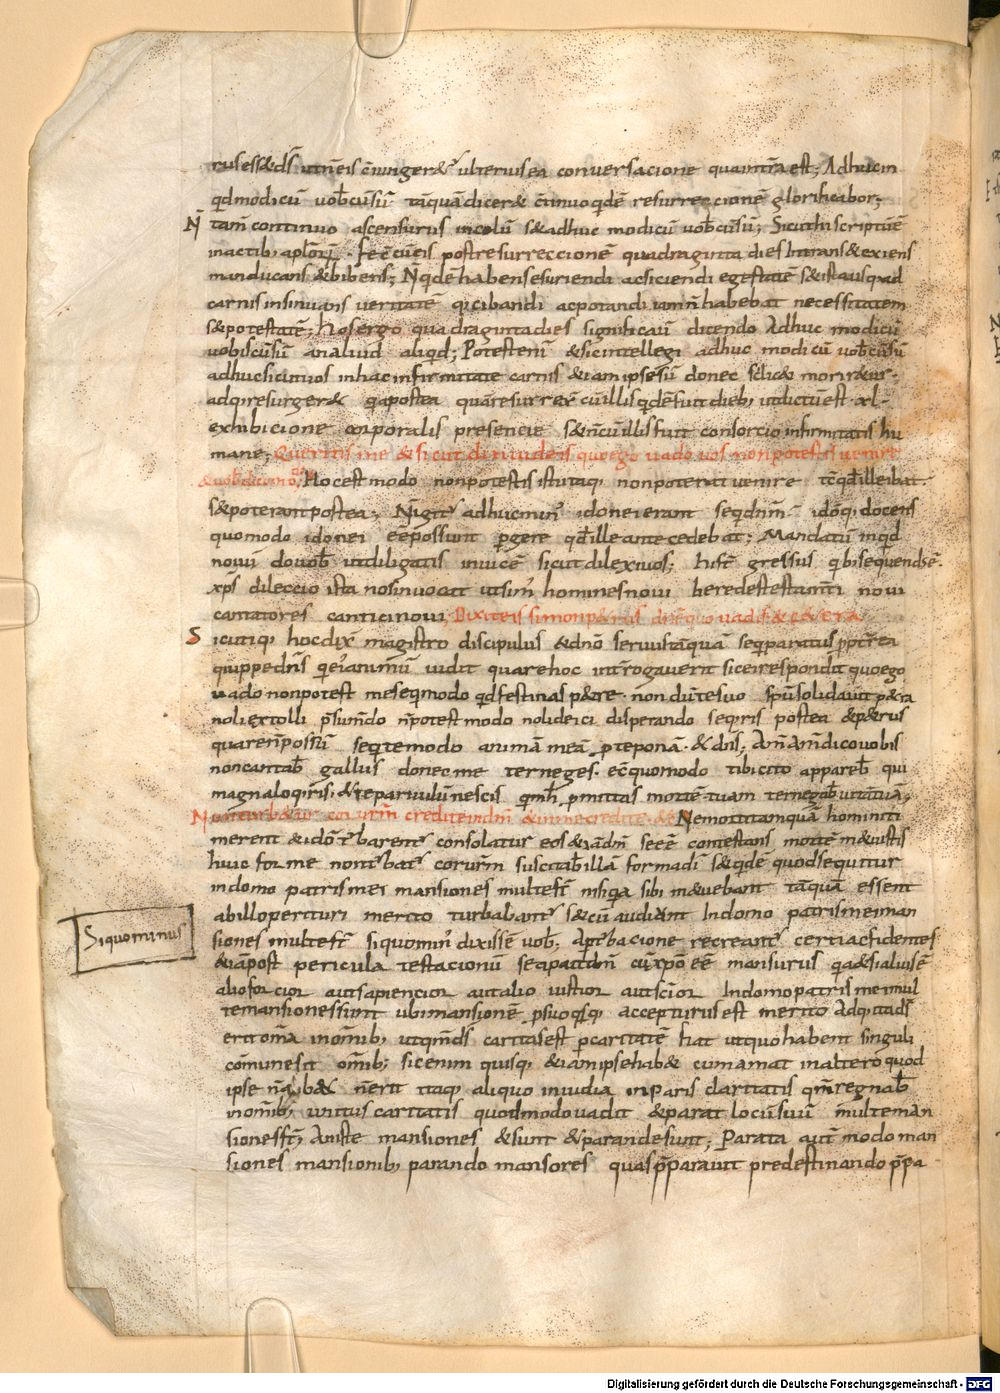 rusess&ds ut neis c̄iunger&ur ulterius ea conversacione quaintra est; Adhucin
qd modicū vob cūsū tāquā dicer& c̄tinuo qdē resurreccionē glorificabor;
N̄ tam continuo ascensurus incelū s&adhuc modicū vob cūsū; Sicut hi scriptū ē
inactib; aplorū. Fec̄ cū eis post resurreccionē quadraginta dies Intrans & exiens
manducans & bibens; N̄ qdē habens esuriendi ac siciendi egestatē s& ista usq; ad
carnis insinuans veritatē q; cibandi ac potandi iam n̄ habebat necessitatem
s& potestatē; Hos ergo quadraginta dies significavit dicendo Adhuc modicū
vobiscū sū an aliud aliqd; Potest enī & sic intellegi adhuc modicū vob cū sū
adhuc sicut vos in hac infirmitate carnis & iam ipse sū donec scilic& morir&ur.
adq; resurger& qa postea quā resurrex̄ cū illis qidē fuit dieb; ut dictū est xl.
exhibicione corporalis presencie s& n̄ cū illis fuit consorcio infirmitatis hu
mane; Queritis me & sicut dixi iudeis quo ego vado vos non potestis venire
& vob dico modo; Hoc est modo non potestis isti itaq; non poterant venire tc̄ qd ille ibat
s& poterant postea; N̄ igit adhuc min' idonei erant seq dnm idōq; docens
quomodo idonei eē possunt pgere qd ille antecedebat; Mandatū inqd
novū do vob ut diligatis invicē sicut dilexi vos; hi s̄t gressus qbi sequend; ē.
xps dileccio ista nos innovat ut sim' homines novi heredes testam̄ti novi
cantatores cantici novi; Dixit eis simon p&rus dn̄e quo vadis & c&era
Sicut itiq; hoc dix̄ magistro discipulus & dn̄o servus tāquā seq paratus ppt̄rea
quippe dn̄s qi ei' animū vidit quare hoc int̄rogaverit sic ei respondit quo ego
vado non potest me seqi modo qd festinas p&re. nōndū te suo spū solidavit p&ra
noli extolli psum̄do n̄ potest modo noli deici disperando seqris postea & p&rus
quare n̄ possū seqi te modo animā meā p te ponā. & dn̄s; Am̄ Am̄ dico vobis
non cantab gallus donec me ter neges. ec̄ quomodo tibi cito appareb qui
magna loqris; & te parvulū nescis qm̄ pmittas mortē tuam ter negab vitā tuā;
Non turb&ur cor vrm creditē in dm & in me credite. &c Ne mortē tamquā homini ti
merent & idō t̄ barent̄ consolatur eos & iā dm̄ seē contestans mortē m&uistis
huic forme non t̄bat' cor vrm suscitab illā forma di s& qdē quod sequitur
in domo patris mei mansiones multe s̄t nisi qa sibi m&uebant tāquā essent
ab illo perituri merito turbabant' s& cū audirent In domo patris mei man
siones multe s̄t si quo min' dixissē vob; A ptbacione recreant' certi ac fidentes
& iā post pericula testacionū se apud dm̄ cū xpo eē mansurus qa & si alius ē
alio forcior aut sapiencior aut alio iustior aut scior In domo patris mei mul
te mansiones sunt ubi mansionē p suo qisq; accepturus est merito Adq; ita ds
erit om̄a in om̄ib; ut qm̄ ds caritas est p caritatē fiat ut quo habent singuli
cōmune sit omīb; sic enim quisq; & iā ipse hab& cum amat in altero quod
ipse n̄ hab& n̄ erit itaq; aliquo invidia inparis claritatis qm̄ regnab
in omīb; unitas caritatis quodmodo vadit & parat locū si viī multe man
siones s̄t; An iste mansiones & sunt & parande sunt; Parata aut modo man
siones mansionib; parando mansores quas pparavit predestinando ppa
Si quo minus
Digitalisierung gefördert durch die Deutsche Forschungsgemeinschaft - DFG